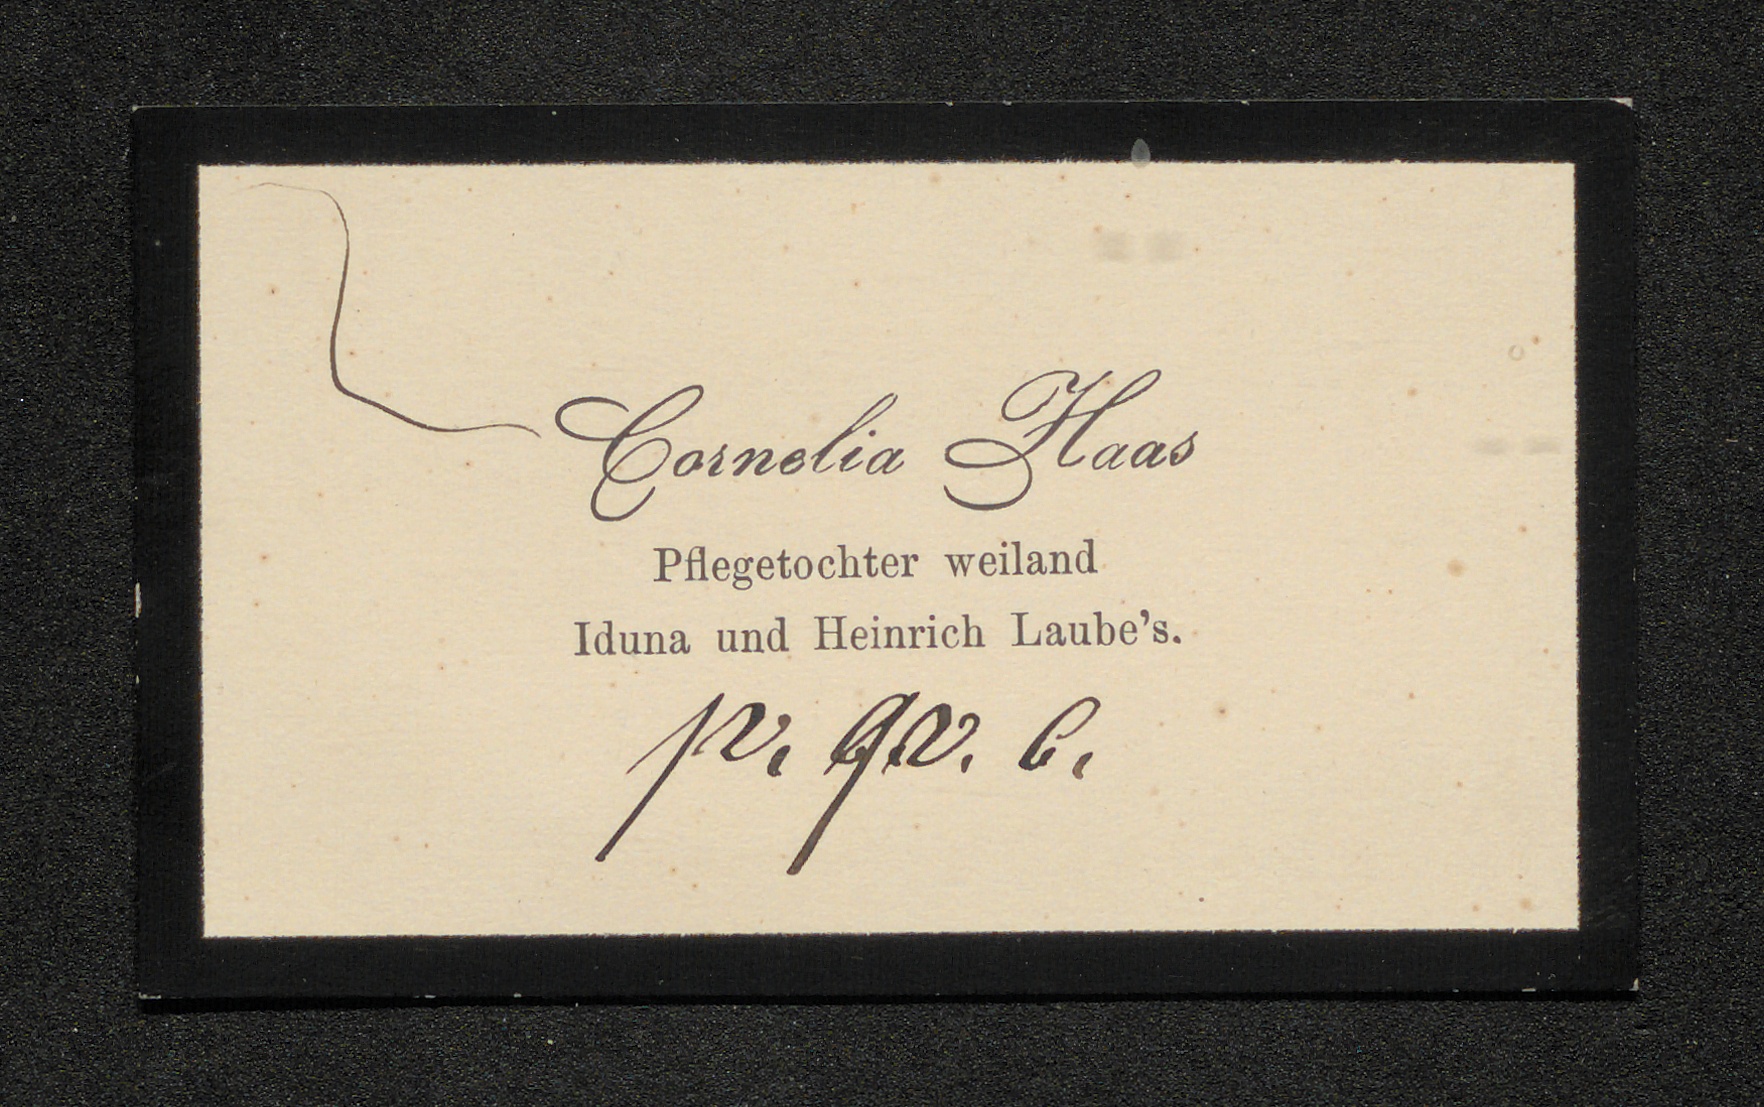 Cornelia Haas
Pflegetochter weiland
Iduna und Heinrich Laube's.